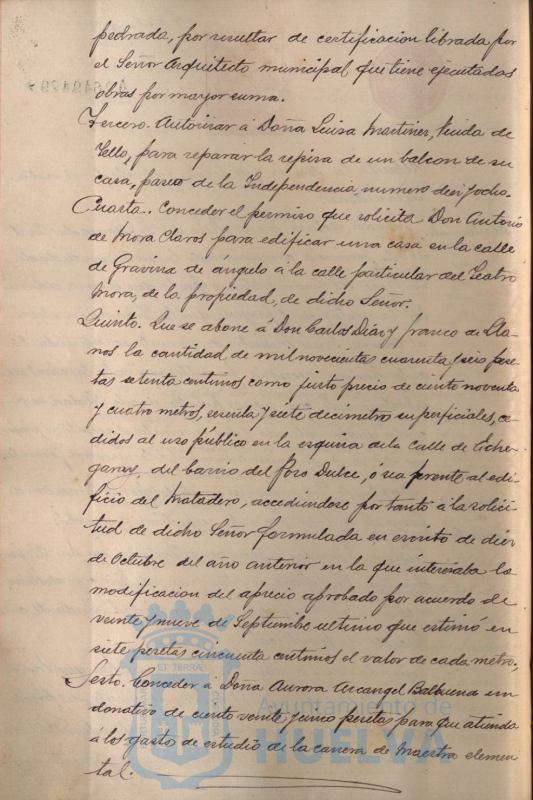 pedrada, por resultar de certificacion librada por
el Señor Arquitecto municipal que tiene ejecutadas
obras por mayor suma.
Tercero. Autorizar á Doña Luisa Martinez, viuda de
Tello, para reparar la repisa de un balcon de su
casa, paseo de la Independencia, numero diez y ocho.
Cuarta. Conceder el permiso que solicita Don Antonio
de Mora Claros para edificar una casa en la calle
de Gravina de ángulo á la calle particular del Teatro
Mora, de la propiedad, de dicho Señor.
Quinto. Que se abone á Don Carlos Diaz y Franco de Lla-
nos la cantidad de mil novecientas cuarenta y seis pese-
tas setenta centimos como justo precio de ciento noventa
y cuatro metros, sesenta y siete decimetro superficiales, ce-
didos al uso público en la esquina de la calle de Eche-
garay, del barrio del Pozo Dulce, ó sea frente al edi-
ficio del Matadero, accediendose por tanto á la solici-
tud de dicho Señor formulada en escrito de diez
de Octubre del año anterior en la que interesaba la
modificacion del aprecio aprobado por acuerdo de
veinte y nueve de Septiembre ultimo que estimó en
siete pesetas cincuenta centimos el valor de cada metro.
Sesto. Conceder á Doña Aurora Arcangel Balbuena un
donativo de ciento veinte y cinco pesetas para que atienda
á los gasto de estudio de la carrera de Maestra elemen-
tal.
ET TERRÆ
Ayuntamiento de
HUELVA